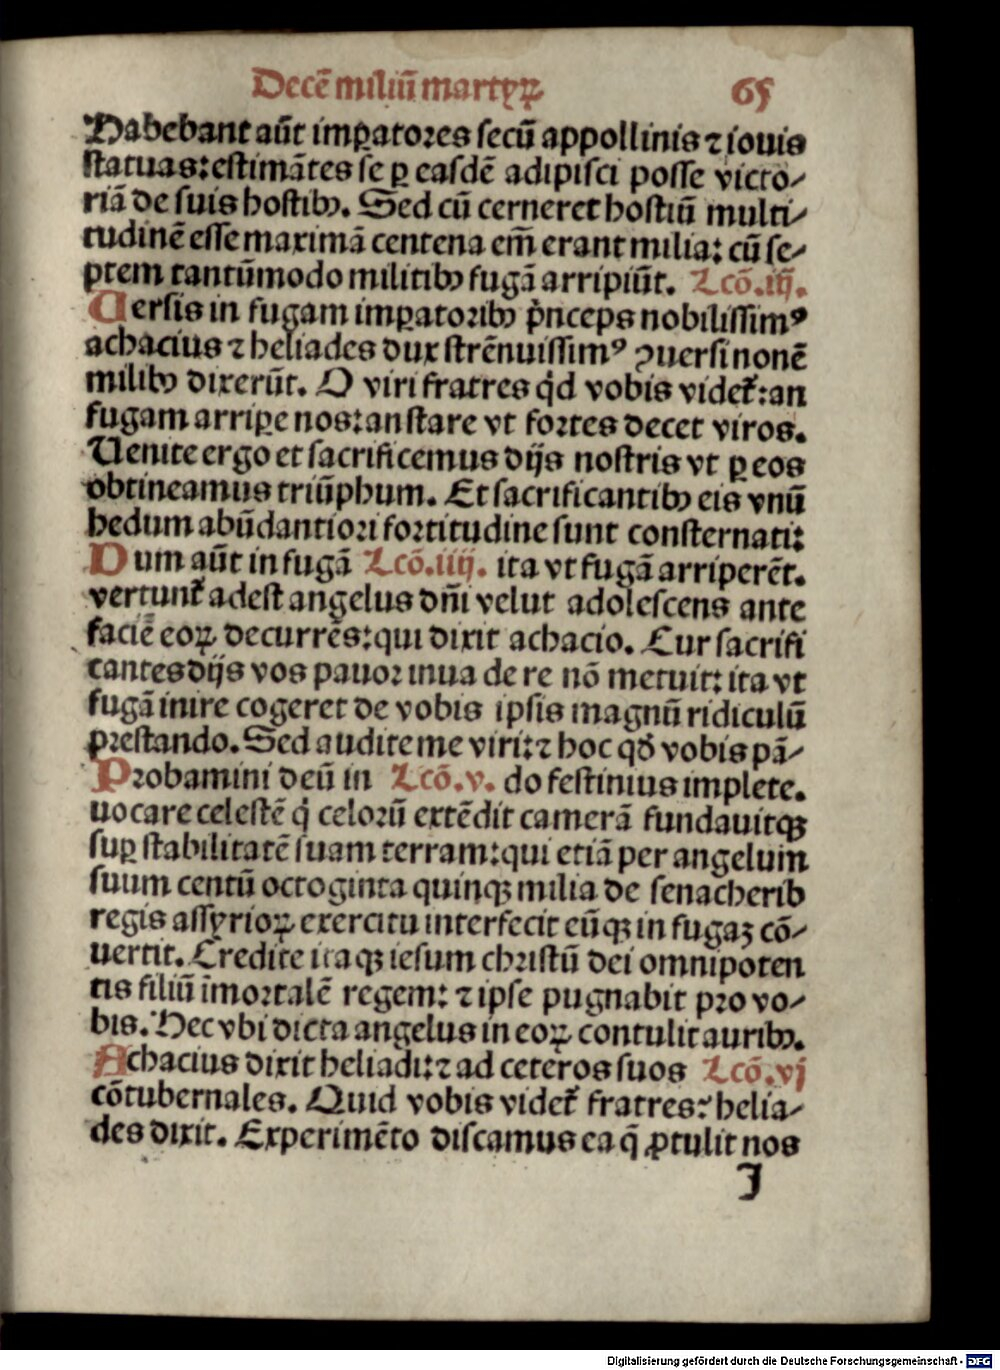 Decē miliū martyꝝ 65
Habebant aūt imꝑatores secū appollinis ⁊ iouis
statuas: estimātes se ꝑ easdē adipisci posse victo-
riā de suis hostibꝰ. Sed cū cerneret hostiū multi-
tudinē esse maximā centena em̄ erant milia: cū se-
ptem tantūmodo militibꝰ fugā arripiūt. Lcō.iij.
Uersis in fugam imꝑatoribꝰ pͥnceps nobilissimꝰ
achacius ⁊ heliades dux strēnuissimꝰ ꝯuersi nonē
milibꝰ dixerūt. O viri fratres qͥd vobis videt᷑: an
fugam arriꝑe nos: an stare vt fortes decet viros.
Uenite ergo et sacrificemus dijs nostris vt ꝑ eos
obtineamus triūphum. Et sacrificantibꝰ eis vnū
hedum abūdantiori fortitudine sunt consternati:
Dum aūt in fugā Lcō.iiij. ita vt fugā arriperēt.
vertunt᷑ adest angelus dn̄i velut adolescens ante
faciē eoꝝ decurrēs: qui dixit achacio. Cur sacrifi
cantes dijs vos pauor inuadere nō metuit: ita vt
fugā inire cogeret de vobis ipsis magnū ridiculū
prestando. Sed audite me viri: ⁊ hoc qd̄ vobis pā-
Probamini deū in Lcō.v. do festinius implete.
uocare celestē qͥ celorū extēdit camerā fundauitqꝫ
suꝑ stabilitatē suam terram: qui etiā per angelum
suum centū octoginta quinqꝫ milia de senacherib
regis assyrioꝝ exercitu interfecit eūqꝫ in fugaꝫ cō-
uertit. Credite itaqꝫ iesum christū dei omnipoten
tis filiū īmortalē regem: ⁊ ipse pugnabit pro vo-
bis. Hec vbi dicta angelus in eoꝝ contulit auribꝰ.
Achacius dixit heliadi: ⁊ ad ceteros suos Lcō.vj
cōtubernales. Quid vobis videt᷑ fratres: helia-
des dixit. Experimēto discamus ea q̄ ꝓtulit nos
I
Digitalisierung gefördert durch die Deutsche Forschungsgemeinschaft - DFG